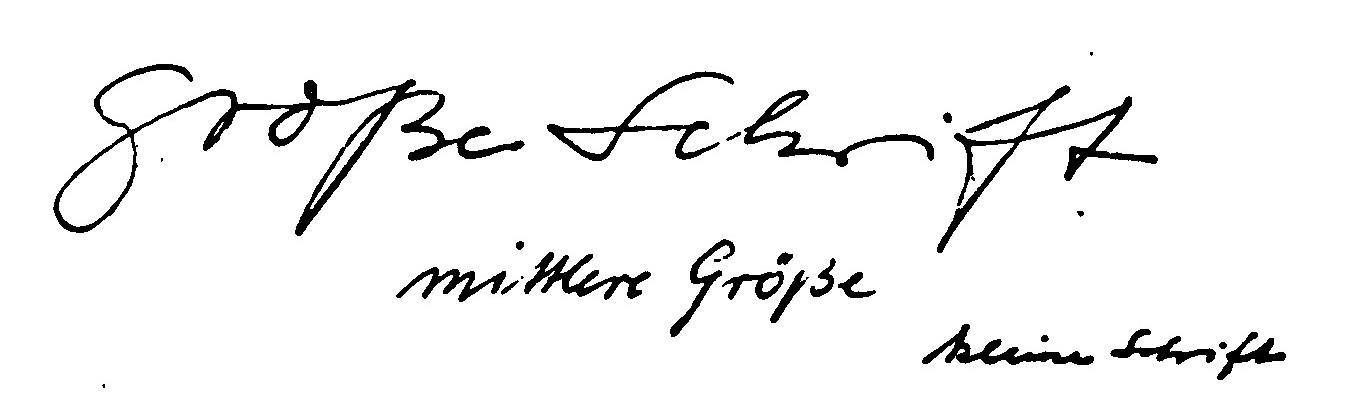 große Schrift
mittlere Größe
kleine Schrift